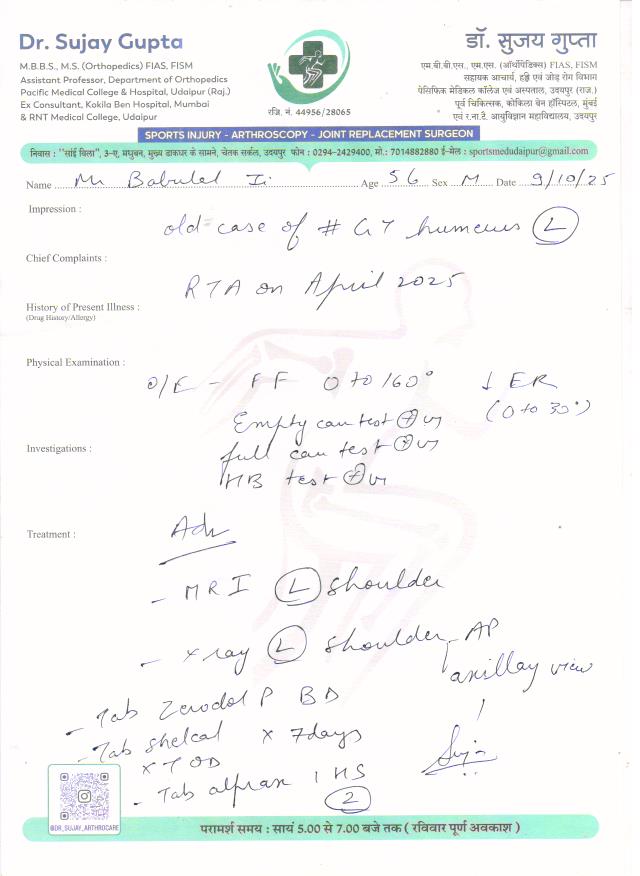 Dr. Sujay Gupta
M.B.B.S., M.S. (Orthopedics) FIAS, FISM
Assistant Professor, Department of Orthopedics
Pacific Medical College & Hospital, Udaipur (Raj.)
Ex Consultant, Kokila Ben Hospital, Mumbai
& RNT Medical College, Udaipur
रजि. नं. 44956/28065
डॉ. सुजय गुप्ता
एम.बी.बी.एस., एम.एस. (ऑर्थोपेडिक्स) FIAS, FISM
सहायक आचार्य, हड्डी एवं जोड़ रोग विभाग
पेसिफिक मेडिकल कॉलेज एवं अस्पताल, उदयपुर (राज.)
पूर्व चिकित्सक, कोकिला बेन हॉस्पिटल, मुंबई
एवं र.ना.टै. आयुर्विज्ञान महाविद्यालय, उदयपुर
SPORTS INJURY - ARTHROSCOPY - JOINT REPLACEMENT SURGEON
निवास : "सांई विला", 3-ए, मधुबन, मुख्य डाकघर के सामने, चेतक सर्कल, उदयपुर फोन : 0294-2429400, मो.: 7014882880 ई-मेल : sportsmedudaipur@gmail.com
Name Mr Babulal Ji Age 56 Sex M Date 9/10/25
Impression : old case of # GT humerus (L)
Chief Complaints :
RTA on April 2025
History of Present Illness :
(Drug History/Allergy)
Physical Examination :
O/E - FF 0 to 160° ↓ ER
(0 to 30°)
Empty can test +ve
Investigations : full can test +ve
HB test +ve
Treatment : Adv
- MRI (L) shoulder
- xray (L) shoulder - AP
axillay view
- Tab Zerodol P BD
- Tab Shelcal x 7days
x 1 OD
- Tab alprax 1 HS
(2)
@DR_SUJAY_ARTHROCARE
परामर्श समय : सायं 5.00 से 7.00 बजे तक ( रविवार पूर्ण अवकाश )